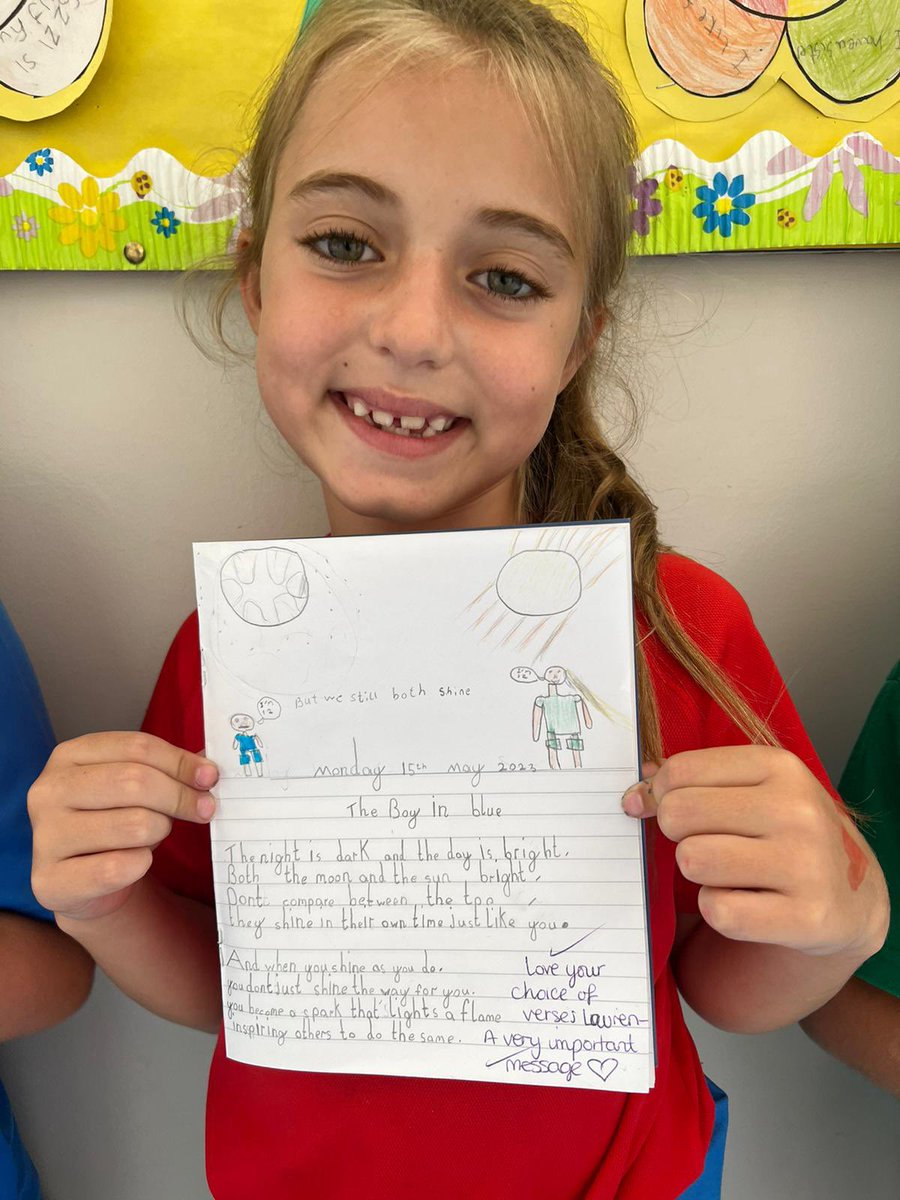 I like
But we still both shine
I'm
12
I'm
12
Monday 15th May 2023
The Boy in blue
The night is dark and the day is bright.
Both the moon and the sun bright.
Dont compare between the too
they shine in their own time just like you.
And when you shine as you do.
you dont just shine the way for you.
you become a spark that lights a flame
inspiring others to do the same.
Love your
choice of
verses Lauren-
A very important
message